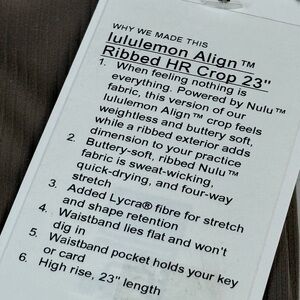 WHY WE MADE THIS
lululemon Align™
Ribbed HR Crop 23"
1. When feeling nothing is
everything. Powered by Nulu™
fabric, this version of our
lululemon Align™ crop feels
weightless and buttery soft,
while a ribbed exterior adds
dimension to your practice
2. Buttery-soft, ribbed Nulu™
fabric is sweat-wicking,
quick-drying, and four-way
stretch
3. Added Lycra® fibre for stretch
and shape retention
4. Waistband lies flat and won't
dig in
5. Waistband pocket holds your key
or card
6. High rise, 23" length